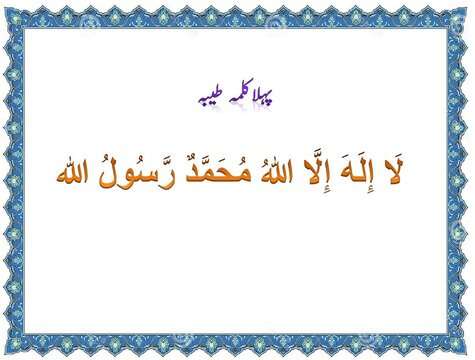 پہلا کلمہ طیبہ
لَا إِلَهَ إِلَّا اللهُ مُحَمَّدٌ رَّسُولُ الله